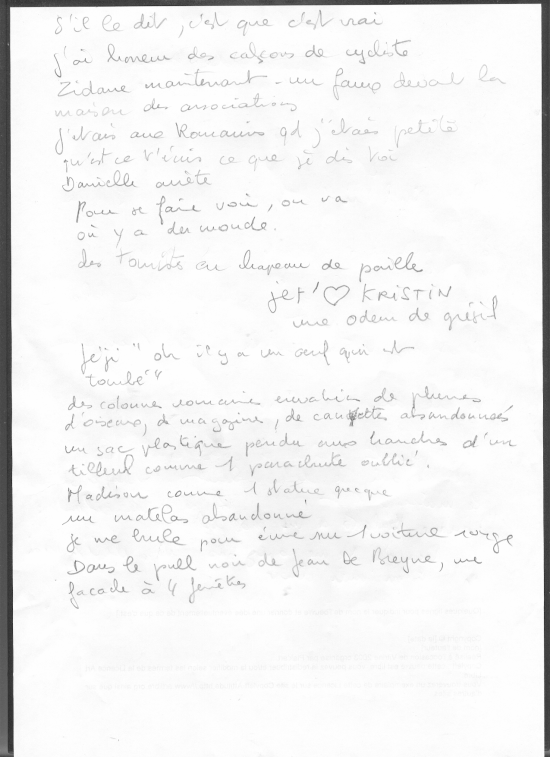 S'il le dit, c'est que c'est vrai
j'ai horreur des calçons de cycliste
Zidane maintenant - un faux devant la
maison des associations
J'étais aux Romarins qd j'étais petite
qu'est ce t'écris ce que je dis toi
Danielle arrête
Pour se faire voir, on va
où y a du monde.
des touristes en chapeau de paille
je t' ♡ KRISTIN
une odeur de grésil
"oh il y a un oeuf qui est
tombé"
des colonnes romaines envahies de plumes
d'oiseaux, de magazine, de canettes abandonnées
un sac plastique pendu aux branches d'un
tilleul comme 1 parachute oublié.
Madison comme 1 statue grecque
un matelas abandonné
je me brûle pour écrire sur 1 voiture rouge
Dans le pull noir de Jean De Breyne, une
façade à 4 fenêtres